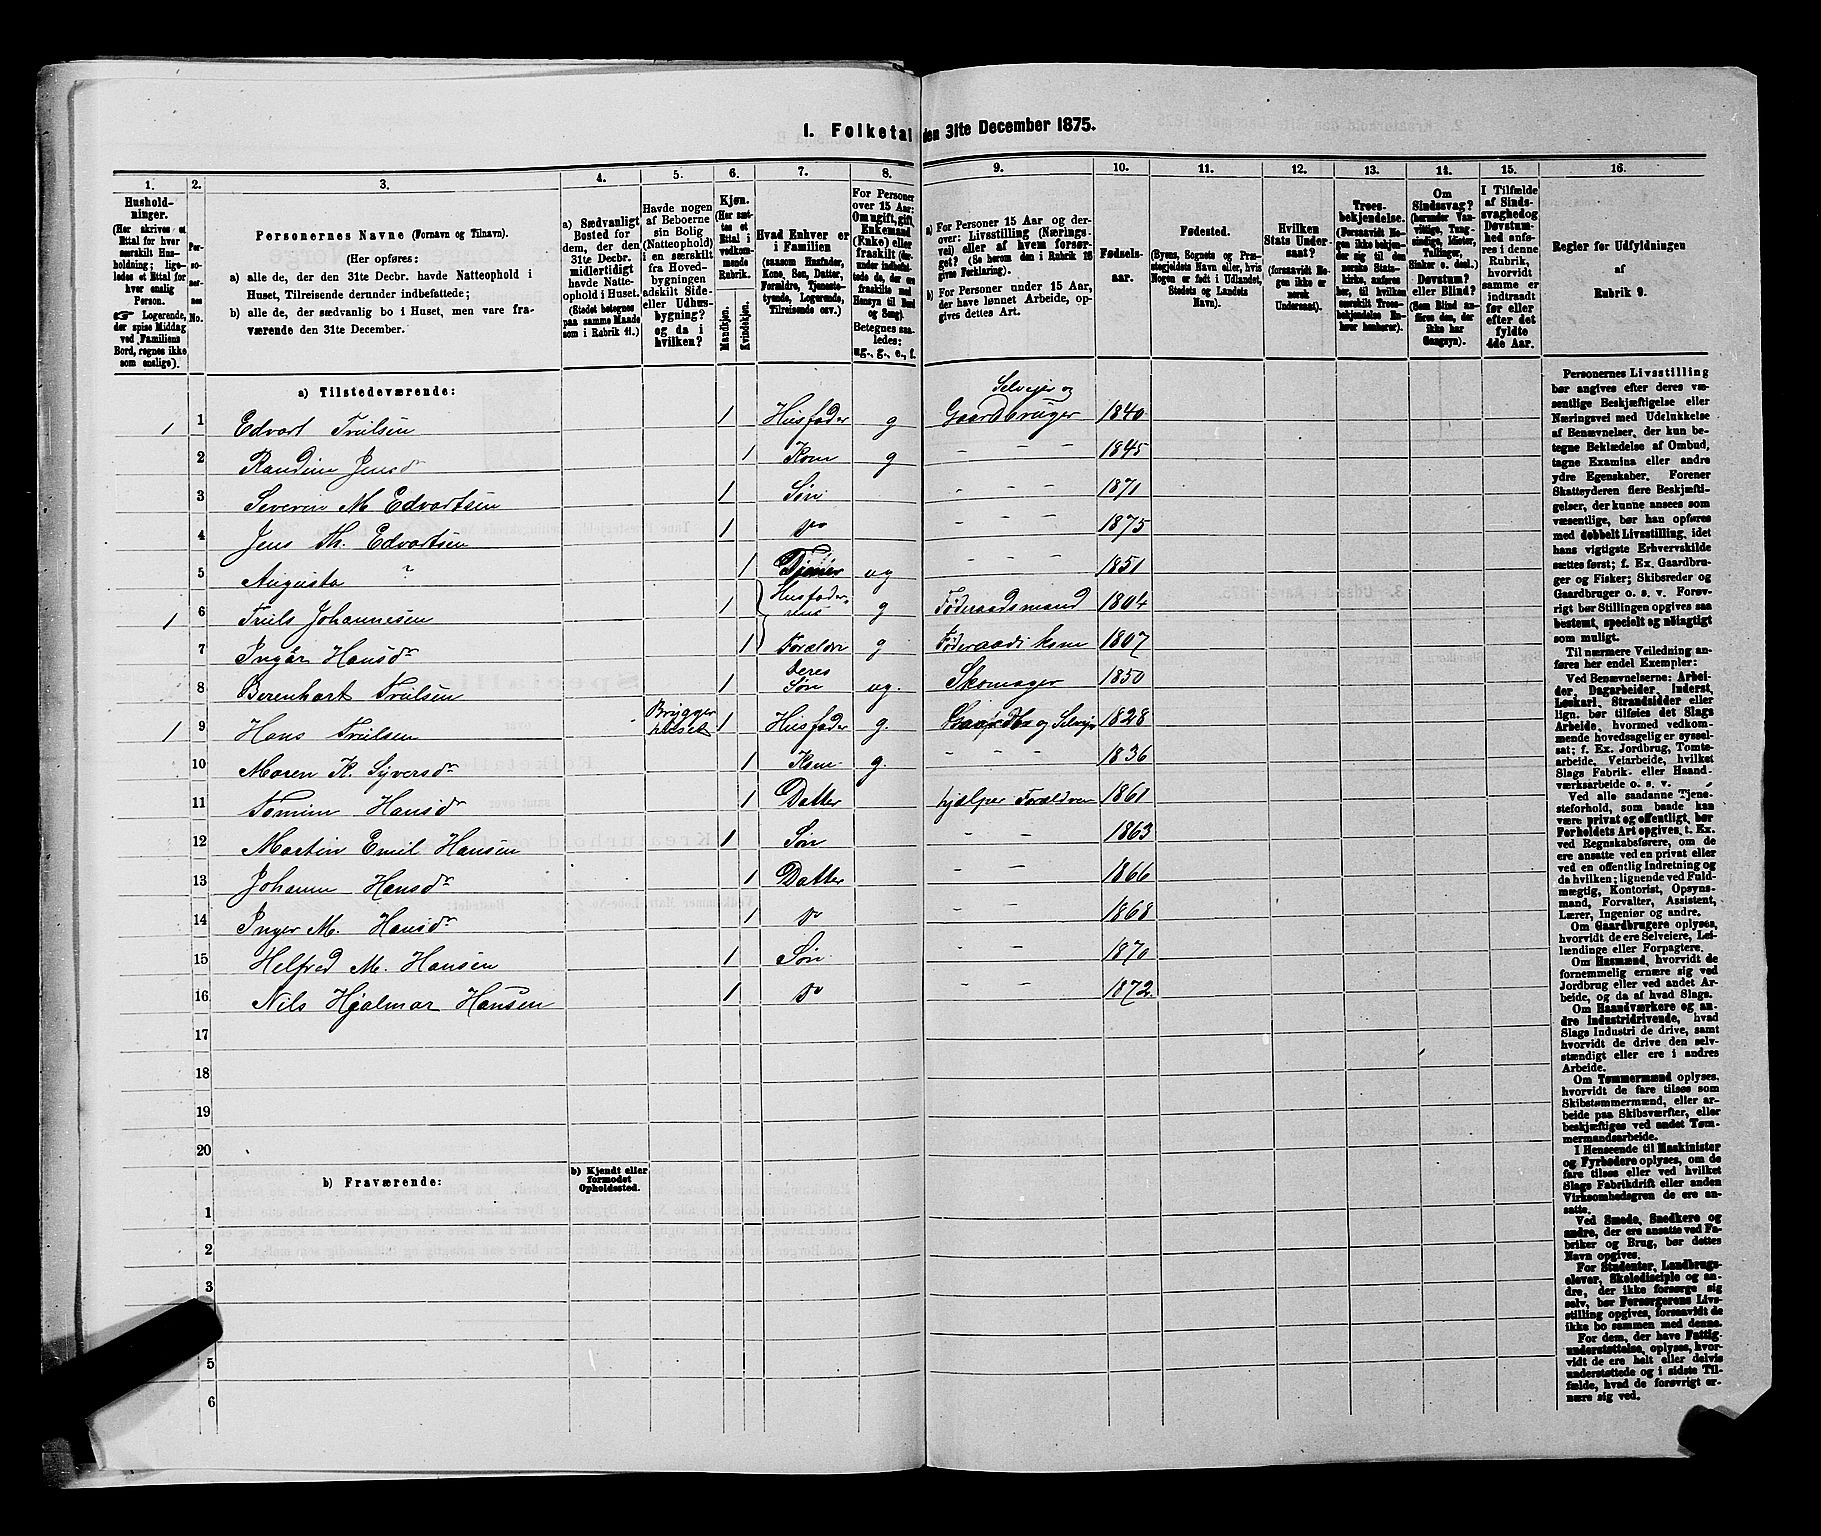 I. Folketal den 31te December 1875.
1. 2. 3. 4. 5. 6. 7. 8. 9. 10. 11. 12. 13. 14. 15. 16.
Hushold-
ninger.
(Her skrives et
Ettal for hver
særskilt Hus-
holdning; lige-
ledes et Ettal for
hver enslig
Person.
☞ Logerende,
der spise Middag
ved Familiens
Bord, regnes ikke
som enslige).
Per-
so-
ner-
nes
No.
Personernes Navne (Fornavn og Tilnavn).
(Her opføres:
a) alle de, der den 31te Decbr. havde Natteophold i
Huset, Tilreisende derunder indbefattede;
b) alle de, der sædvanlig bo i Huset, men vare fra-
værende den 31te December.
a) Sædvanligt
Bosted for
dem, der den
31te Decbr.
midlertidigt
havde Natte-
ophold i Huset.
(Stedet betegnes
paa samme Maade
som i Rubrik 11.)
Havde nogen
af Beboerne
sin Bolig
(Natteophold)
i en særskilt
fra Hoved-
bygningen
adskilt Side-
eller Udhus-
bygning?
og da i
hvilken?
Kjøn.
(Her sæt-
tes et
Ettal i
vedkom-
mende
Rubrik.
Mandkjøn.
Kvindekjøn.
Hvad Enhver er
i Familien
(saasom Husfader,
Kone, Søn, Datter,
Forældre, Tjeneste-
tyende, Logerende,
Tilreisende osv.)
For Personer
over 15 Aar:
Om ugift, gift,
Enkemand
(Enke) eller
fraskilt (der-
under indbefat-
tede de, der ere
fraskilte med
Hensyn til Bord
og Seng).
Betegnes saa-
ledes:
ug., g., e., f.
a) For Personer 15 Aar og der-
over: Livsstilling (Nærings-
vei) eller af hvem forsør-
get? (Se herom den i Rubrik 16
givne Forklaring).
b) For Personer under 15 Aar,
der have lønnet Arbeide, op-
gives dettes Art.
Fødsels-
aar.
Fødested.
(Byens, Sognets og Præ-
stegjeldets Navn eller, hvis
Nogen er født i Udlandet,
Stedets og Landets
Navn).
Hvilken
Stats Under-
saat?
(forsaavidt No-
gen ikke er
norsk
Undersaat).
Troes-
bekjendelse.
(Forsaavidt No-
gen ikke bekjen-
der sig til den
norske Stats-
kirke, anføres
her, til hvilken
særskilt Troes-
bekjendelse En-
hver henhører).
Om
Sindssvag?
(herunder Van-
vittige, Tung-
sindige, Idioter,
Tullinger,
Sinker o. desl.)
Døvstum?
eller Blind?
(Som Blind an-
føres den, der
ikke har
Gangsyn).
I Tilfælde
af Sinds-
svaghed og
Døvstum-
hed anfø-
res i denne
Rubrik,
hvorvidt
samme er
indtraadt
før eller
efter det
fyldte
4de Aar.
Regler for Udfyldningen
af
Rubrik 9.
a) Tilstedeværende:
1 1 Edvart Trulsen 1 Husfader g Selvejer og Gaardbruger 1840
2 Randine Jensdr 1 Kone g - - - 1845
3 Severin M Edvartsen 1 Søn - - - 1871
4 Jens Th. Edvartsen 1 do - - - 1875
5 Augusta ? 1 Tjener ug - - - 1851
1 6 Truls Johannesen 1 Husfader- g Føderaadsmand 1804
7 Ingør Hansdr 1 Forældre g Føderaads kone 1807
8 Berenhart Trulsen 1 Deres Søn ug. Skomager 1850
1 9 Hans Trulsen Brygger huset 1 Husfader g. Gaardbr og Selvejer 1828
10 Maren K. Syversdr 1 Kone g. - - - 1836
11 Tomine Hansdr 1 Datter hjælper Forældrene 1861
12 Martin Emil Hansen 1 Søn - - 1863
13 Johanne Hansdr 1 Datter - - 1866
14 Inger M. Hansdr 1 do - - 1868
15 Helfred M. Hansen 1 Søn - - 1870
16 Nils Hjalmar Hansen 1 do - - 1872.
17
18
19
20
b) Fraværende:
b) Kjendt eller
formodet
Opholdssted.
1
2
3
5
6
Personernes Livsstilling
bør angives efter deres væ-
sentlige Beskjæftigelse eller
Næringsvei med Udelukkelse
af Benævnelser, der kun be-
tegne Beklædelse af Ombud,
tagne Examina eller andre
ydre Egenskaber. Forener
Skatteyderen flere Beskjæfti-
gelser, der kunne ansees som
væsentlige, bør han opføres
med dobbelt Livsstilling, idet
hans vigtigste Erhvervskilde
sættes først; f. Ex. Gaardbru-
ger og Fisker; Skibsreder og
Gaardbruger o. s. v. Forøv-
rigt bør Stillingen opgives saa
bestemt, specielt og nøiagtigt
som muligt.
Til nærmere Veiledning an-
føres her endel Exempler:
Ved Benævnelserne: Arbei-
der, Dagarbeider, Inderst,
Løskarl, Strandsidder eller
lign. bør tilføies det Slags
Arbeide, hvormed vedkom-
mende hovedsagelig er syssel-
sat; f. Ex. Jordbrug, Tomte-
arbeide, Veiarbeide, hvilket
Slags Fabrik- eller Haand-
værksarbeide o. s. v.
Ved alle saadanne Tjene-
steforhold, som baade kan
være privat og offentligt, bør
Forholdets Art opgives, t. Ex.
ved Regnskabsførere, om de
ere ansatte ved en privat eller
ved en offentlig Indretning og
da hvilken; lignende ved Fuld-
mægtig, Kontorist, Opsyns-
mand, Forvalter, Assistent,
Lærer, Ingeniør og andre.
Om Gaardbrugere oplyses,
hvorvidt de ere Selveiere, Lei-
lændinge eller Forpagtere.
Om Husmænd, hvorvidt de
fornemmelig ernære sig ved
Jordbrug eller ved andet Ar-
beide, og da af hvad Slags.
Om Haandværkere og an-
dre Industridrivende, hvad
Slags Industri de drive, samt
hvorvidt de drive den selv-
stændigt eller ere i andres
Arbeide.
Om Tømmermænd oplyses,
hvorvidt de fare tilsøs som
Skibstømmermænd, eller ar-
beide paa Skibsværfter, eller
beskjæftiges ved andet Tøm-
mermandsarbeide.
I Henseende til Maskinister
og Fyrbødere oplyses, om de
fare tilsøs eller ved hvilket
Slags Fabrikdrift eller anden
Virksomhedsgren de ere an-
satte.
Ved Smede, Snedkere og
andre, der ere ansatte ved Fa-
briker og Brug, bør dettes
Navn opgives.
For Studenter, Landbrugs-
elever, Skoledisciple og an-
dre, der ikke forsørge sig
selv, bør Forsørgerens Livs-
stilling opgives, forsaavidt de
ikke bo sammen med denne.
For dem, der have Fattig-
understøttelse, oplyses, hvor-
vidt de ere helt eller delvis
understøttede og i sidste Til-
fælde, hvad de forøvrigt er-
nære sig ved.